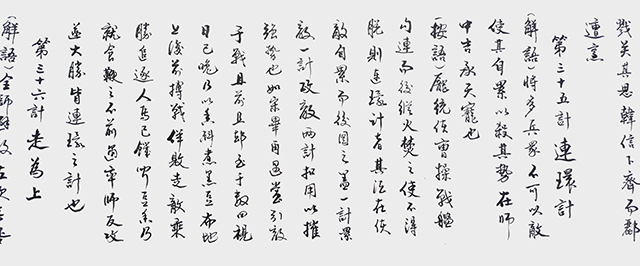 戮关其思韓信下齊而酈
遭烹
第三十五計 連環計
(解語)將多兵眾不可以敵
使其自累以殺其勢 在師
中吉承天寵也
[按語]龐統使曹操戰艦
勾連而後縱火焚之使不得
脫則連環計者其法在使
敵自累而後圖之蓋一計累
敵一計攻敵两計扣用以摧
強勢也如宋畢再遇嘗引敵
于戰且前且却至于數四視
日已晚乃以香料煮黑豆布地
上復前搏戰佯敗走敵乘
勝追逐人馬已饑聞豆香乃
就食鞭之不前遇率師反攻
遂大勝皆連環之計也
第三十六計 走為上
(解語)全師避敵左次無